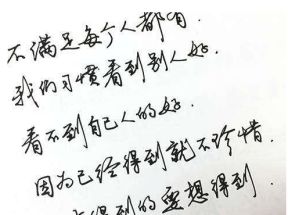 不满足每个人都有.
我们习惯看到别人好.
看不到自己人的好.
因为已经得到就不珍惜.
得到的要想得到.